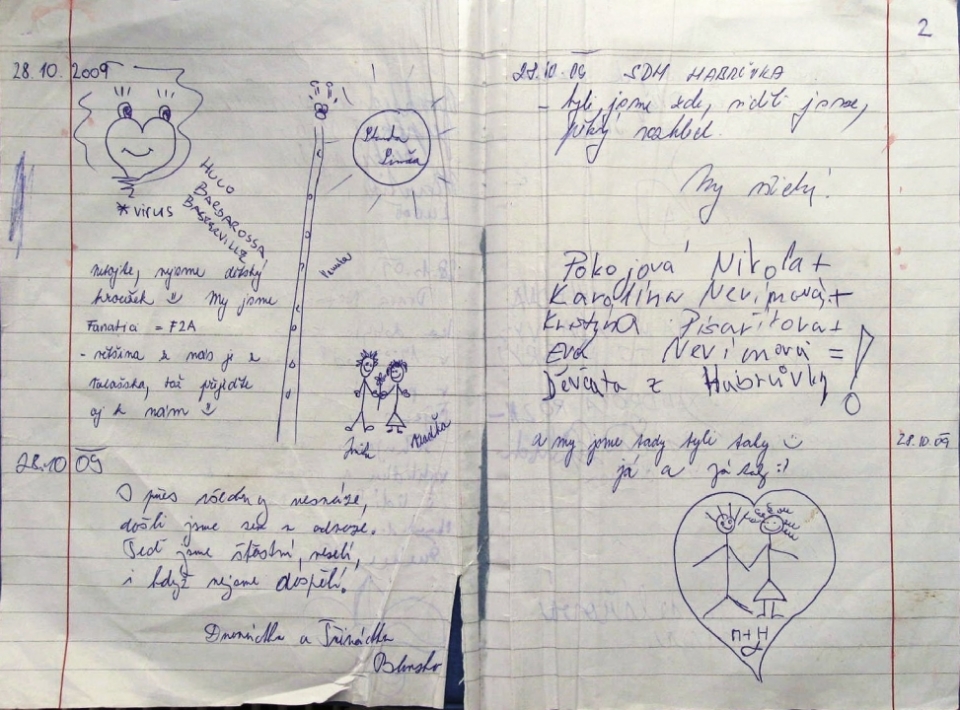 28.10. 2009
*virus
HUGO
BARBAROSSA
BASKERVILLE
nebojte, nejsme dětský
kroužek My jsme
Fanatia = F2A
- většina z nás je z
Valašska, tož přijeďte
aj k nám
28.10 09
I přes všechny nesnáze,
došli jsme sem z
Teď jsme šťastní, veselí,
i když nejsme dospělí.
Dvanáctka a Třináctka
Blansko
2
28.10.09 SDH HABRŮVKA
- byli jsme zde, viděli jsme,
pěkný rozhled.
My všichni!
Pokojová Nikola +
Karolína Nevímová +
Kristýna
Eva Nevímová =
Děvčata z Habrůvky!
a my jsme tady byli taky
já a já taky :)
28.10.09
M+H